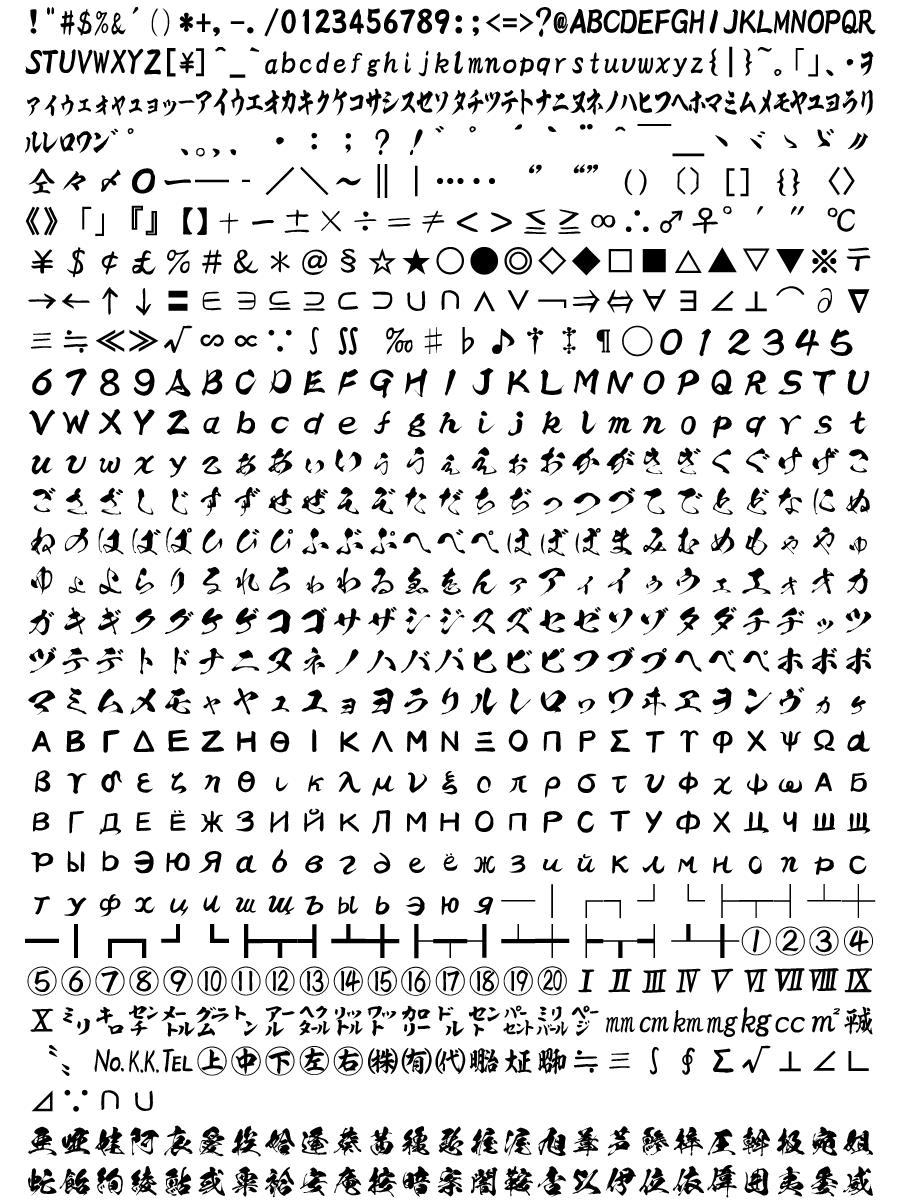 !"#$%&´()*+,-./0123456789:;<=>?@ABCDEFGHIJKLMNOPQR
STUVWXYZ[¥]^_`abcdefghijklmnopqrstuvwxyz{|}~。「」、・ヲ
ァィゥェォャュョッーアイウエオカキクケコサシスセソタチツテトナニヌネノハヒフヘホマミムメモヤユヨラリ
ルレロワン゛゜、。,.・:;?!゛゜´`¨^‾_ヽヾゝゞ〃
仝々〆〇ー—‐/\~‖|…‥‘’“”()〔〕[]{}〈〉
《》「」『』【】+−±×÷=≠<>≦≧∞∴♂♀°′″℃
¥$¢£%#&*@§☆★○●◎◇◆□■△▲▽▼※〒
→←↑↓〓∈∋⊆⊇⊂⊃∪∩∧∨¬⇒⇔∀∃∠⊥⌒∂∇
≡≒≪≫√∽∝∵∫∬‰♯♭♪†‡¶◯012345
6789ABCDEFGHIJKLMNOPQRSTU
VWXYZabcdefghijklmnopqrst
uvwxyzぁあぃいぅうぇえぉおかがきぎくぐけげこ
ごさざしじすずせぜそぞただちぢっつづてでとどなにぬ
ねのはばぱひびぴふぶぷへべぺほぼぽまみむめもゃやゅ
ゆょよらりるれろゎわゐゑをんァアィイゥウェエォオカ
ガキギクグケゲコゴサザシジスズセゼソゾタダチヂッツ
ヅテデトドナニヌネノハバパヒビピフブプヘベペホボポ
マミムメモャヤュユョヨラリルレロヮワヰヱヲンヴヵヶ
ΑΒΓΔΕΖΗΘΙΚΛΜΝΞΟΠΡΣΤΥΦΧΨΩα
βγδεζηθικλμνξοπρστυφχψωАБ
ВГДЕЁЖЗИЙКЛМНОПРСТУФХЦЧШЩ
ЪЫЬЭЮЯабвгдеёжзийклмнопрс
туфхцчшщъыьэюя─│┌┐┘└├┬┤┴┼
━┃┏┓┛┗┣┳┫┻╋┠┯┨┷┿┝┰┥┸╂①②③④
⑤⑥⑦⑧⑨⑩⑪⑫⑬⑭⑮⑯⑰⑱⑲⑳ⅠⅡⅢⅣⅤⅥⅦⅧⅨ
Ⅹ㍉㌔㌢㍍㌘㌧㌃㌶㍑㍗㌍㌦㌣㌫㍊㌻㎜㎝㎞㎎㎏㏄㎡㍻
〝〟No.K.K.TEL㊤㊥㊦㊧㊨㈱㈲㈹㍾㍽㍼≒≡∫∮Σ√⊥∠∟
⊿∵∩∪
亜唖娃阿哀愛挨姶逢葵茜穐悪握渥旭葦芦鯵梓圧斡扱宛姐
虻飴絢綾鮎或粟袷安庵按暗案闇鞍杏以伊位依偉囲夷委威